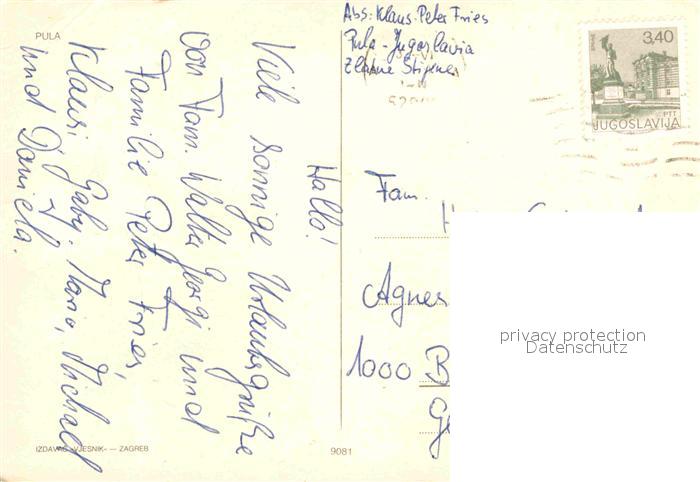 PULA
Hallo!
Viele sonnige Urlaubsgrüße
von Fam. Walter Georgi und
Familie Peter Fries,
Klausi, Gaby, Mario, Michael
und Daniela.
IZDAVAČ »VJESNIK« — ZAGREB
9081
Abs: Klaus-Peter Fries
Pula - Jugoslavia
Zlatne Stijene
3,40
PTT
JUGOSLAVIJA
Fam.
Agnes
1000 B
privacy protection
Datenschutz